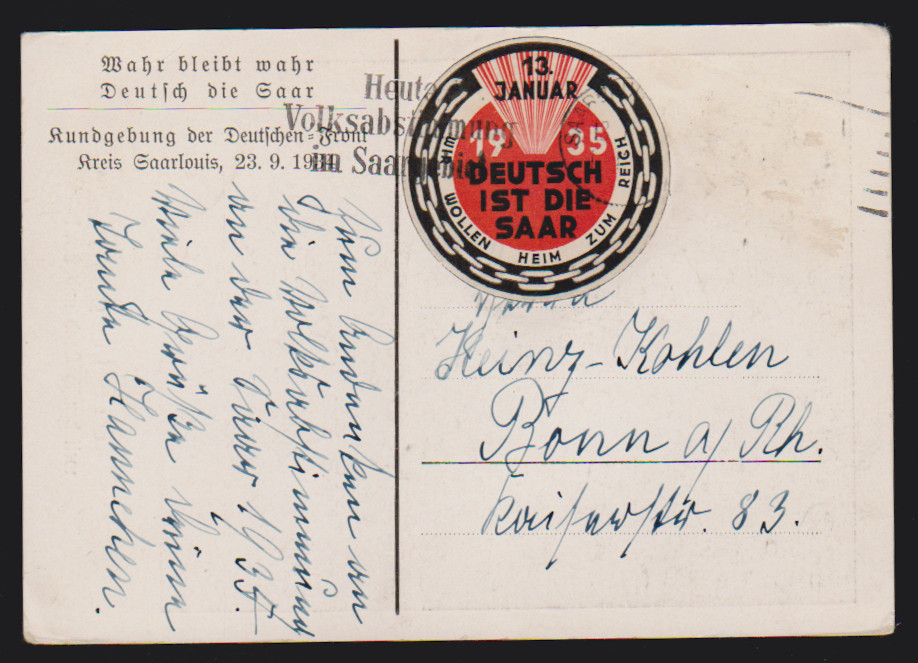 Wahr bleibt wahr
Deutsch die Saar
Kundgebung der Deutschen=Front
Kreis Saarlouis, 23. 9. 1934.
Heute
Volksabstimmung
im Saargebiet
13.
JANUAR
19 35
DEUTSCH
IST DIE
SAAR
WIR WOLLEN HEIM ZUM REICH
Zum Andenken an
die Volksabstimmung
an der Saar 1935.
Viele Grüße Deine
Tante Hannchen.
Herrn
Heinz-Kohlen
Bonn a/Rh.
Kaiserstr. 83.